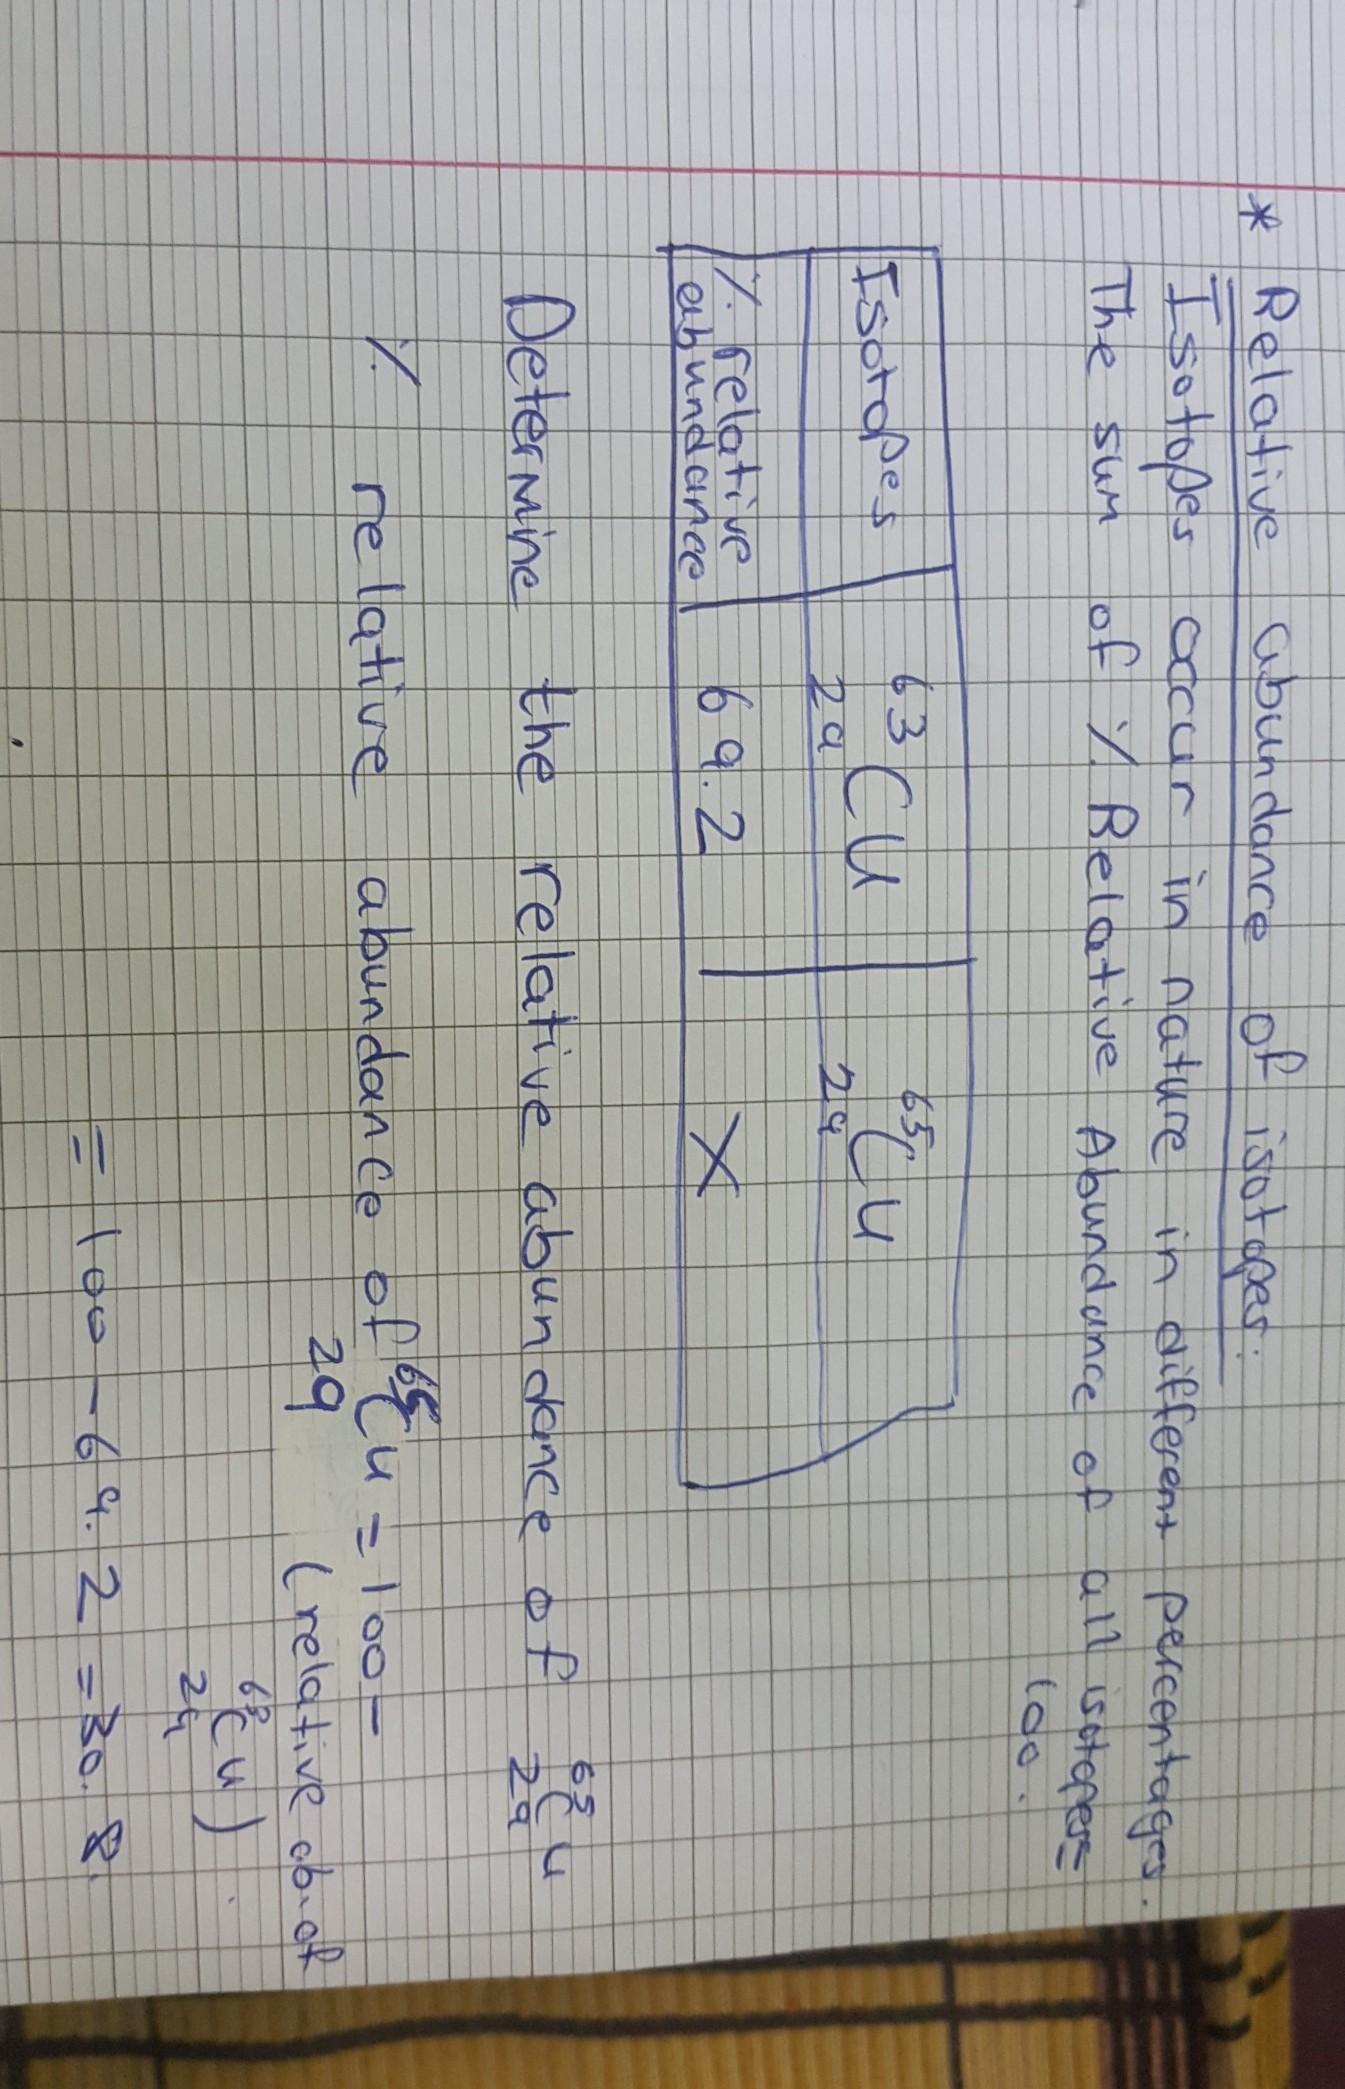 * Relative abundance of isotopes:
Isotopes occur in nature in different percentages.
The sum of % Relative Abundance of all isotopes=
100.
Isotopes 63 29 Cu 65 29 Cu
% relative abundance 69.2 X
Determine the relative abundance of 65 29 Cu
% relative abundance of 65 29 Cu = 100-
(relative ab. of
63 29 Cu).
= 100 - 69.2 = 30.8.